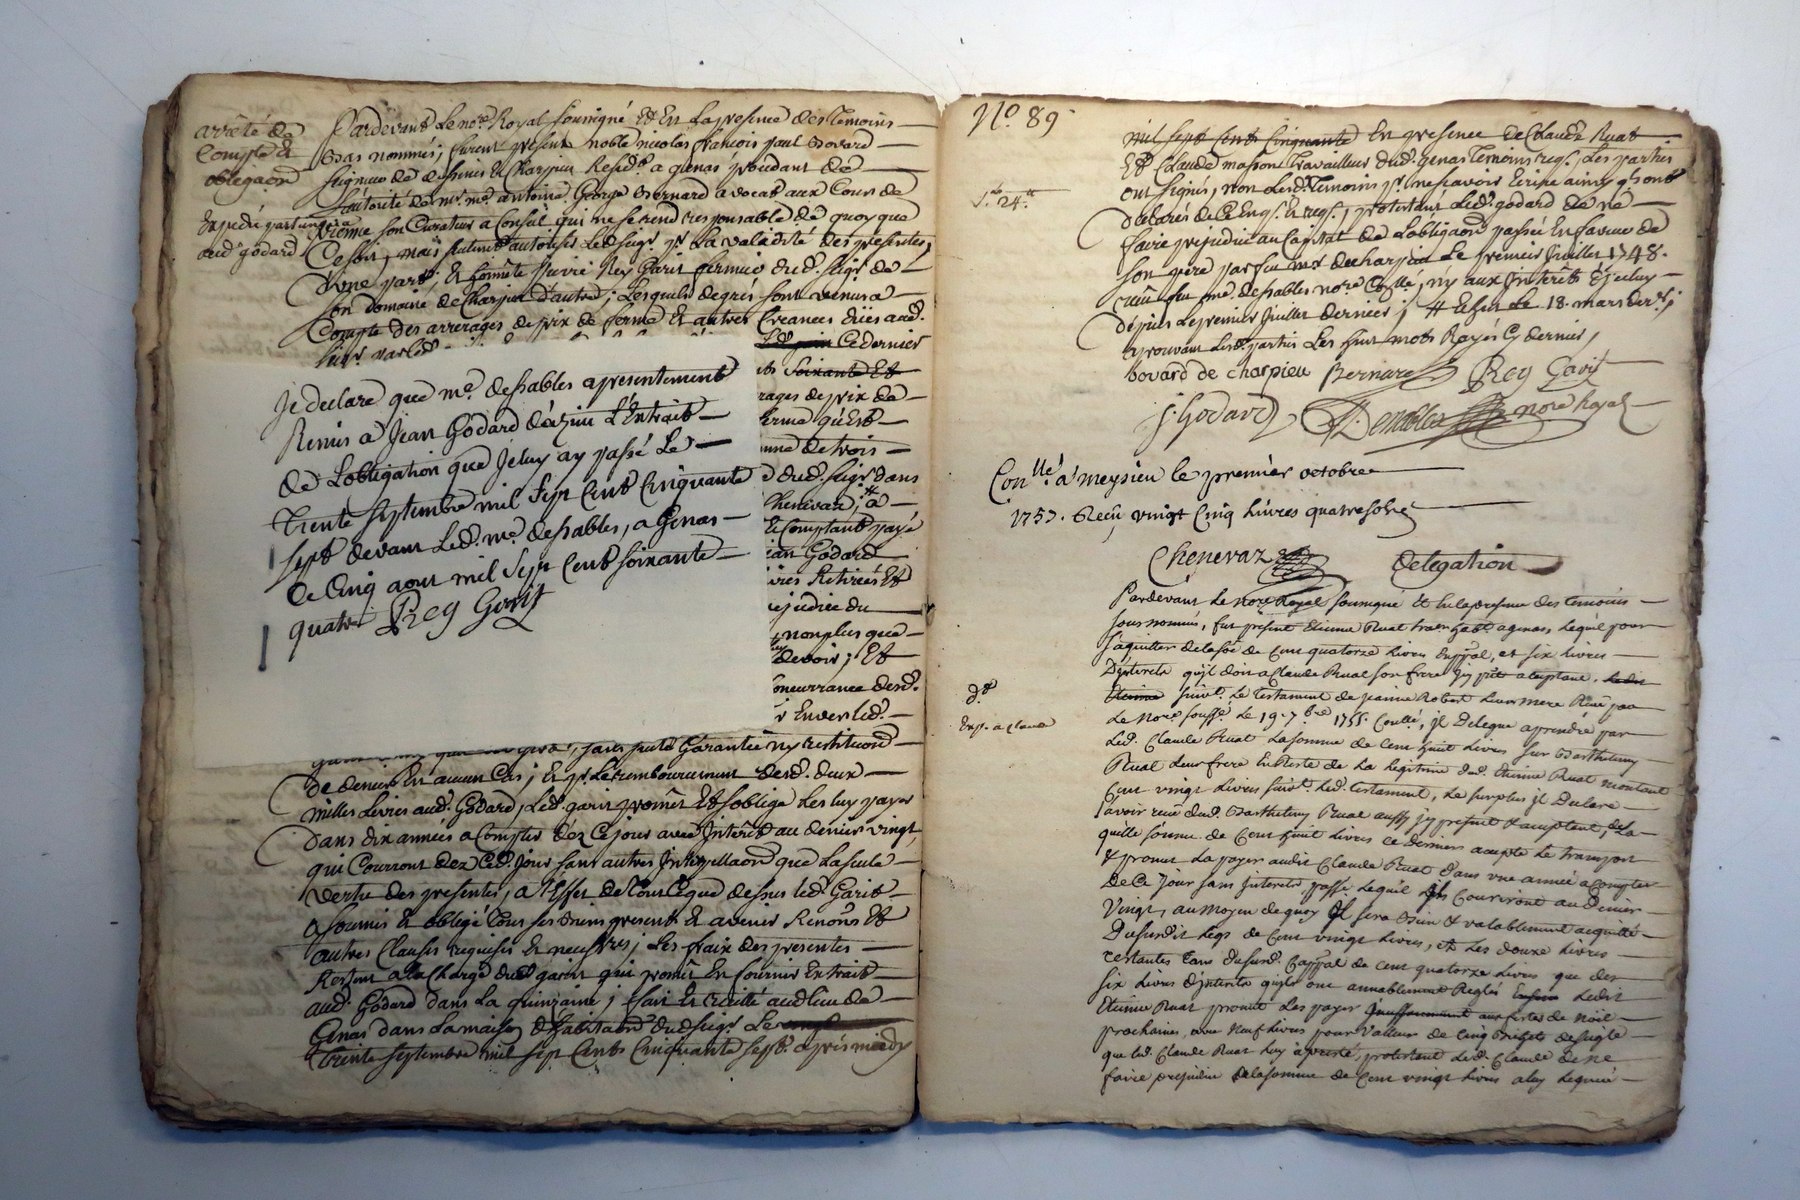 arrêté de
Compte et
obligaon
Expedié par lung
aud. godard
Pardevant Le nore Royal soussigné Et En La presence des Temoins
Bas nommés; furent present noble nicolas francois paul Bovard
seigneur de et Charpieu Resid.t a genas procedant de
autorité de mr. me. antoine George Bernard avocat aux Cours de
vienne son Curateur a Conseil qui ne se rend responsable de quoy que
Ce soit, mais seulemt autorise Led. seigr pr La validité des presentes,
D'une part; Et honnete pierre Rey Gavit fermier dud. seigr de
son Domaine de Charpieu d'autre; Lesquels de gré sont venus a
Compte des arrerages de prix de ferme Et autres Creances dües aud.
seigr par led.
Ce dernier
Soixante Et
rages de prix de
ferme qu'Est
de trois
dud. seigr dans
Chenevaz, a
Comptant payé
Jean Godard
Livres Retirées Et
prejudice du
non plus que
devoir; Et
Concurrance desd.
Envers led.
Je declare que me. desables a presentement
Remis a Jean Godard d'azieu L'Extrait
de Lobligation que Je luy ay passé Le
Trente septembre mil sept Cent Cinquante
sept devant Led. me. desables, a Genas
Ce Cinq aout mil sept Cent soixante
quatre Rey Gavit
sans garantie ny restitution
de deniers En aucun Cas; Et pr Le remboursement desd. deux
milles Livres aud. Godard, Led. gavit promet Et soblige Les luy payer
Dans dix années a Compter dez Ce jour avec Interêt au denier vingt,
qui Courront dez Ced. Jour sans autres Interpellaon que La seule
vertu des presentes, a L'Effet de Tout Ceque dessus led. Gavit
a soumis Et obligé Tous ses Biens presents Et avenir Renons Et
autres Clauses requises Et necessres; Les fraix des presentes
Restent a la Charge dud. gavit qui promet En fournir Extrait
aud. Godard dans La quinzaine; fait Et recitté aud. lieu de
Genas dans La maison d'habitaon dud. seigr Le
Trente septembre mil sept Cents Cinquante sept. apres midy
No. 89
mil sept Cent Cinquante En presence de Claude Ruat
Et Claude masson Travailleurs dud. genas Temoins reqs. Les parties
ont signés, non Lesd. Temoins pr ne scavoir Ecrire ainsy qls ont
declarés de Ce Enqs. Et reqs., protestant Led. godard de ne
24
faire prejudice au Capital de Lobligaon passée En faveur de
son pere par feu mr de charpieu Le premier Juillet 1748.
reçüe feu me. desables nore Conllé, ny aux Interêts d'jceluy
depuis Le premier Juillet dernier;
aprouvant Lesd. parties Les huit mots Rayés Cy dernier,
bovard de charpieu Bernard Rey Gavit
J. Godard Desables nore Royal
Conllé. a meysieu le premier octobre
1757. Reçu vingt Cinq Livres quatre sols
Chenevaz
Delegation
Pardevant Le nore Royal soussigné Et En la presence des temoins
sous nommés, fut present Etienne Ruat travr habt. a genas, Lequel pour
s'aquitter de la soe de Cent quatorze Livres Cappal, et six Livres
D'jnterets qu'jl doit a Claude Ruat son frere jcy present acceptant,
suivt. Le testament de jeanne Robert Leur mere Reçu par
Le Nore soussé. Le 19. 7bre 1755. Conllé, jl Delegue a prendre par
Exp. a Claude
Led. Claude Ruat La somme de Cent huit Livres sur Barthelemy
Ruat Leur frere En Reste de La Legitime dud. Etienne Ruat montant
Cent vingt Livres suivt. Led. testament, Le surplus jl Declare
avoir reçu dud. Barthelemy Ruat aussy jcy present & acceptant, de la
quelle somme de Cent huit Livres Ce dernier accepte Le transport
& promet La payer audit Claude Ruat dans une année a compter
De Ce jour sans Interets, passé Lequel jls Courriront au Denier
Vingt, au moyen de quoy jl sera Bien & valablement acquitté
Du susdit Legs de Cent vingt Livres, et Les douze Livres
restantes tant du susd. Cappal de Cent quatorze Livres que des
six Livres d'jnterets qu'jls ont amiablement Reglés Ledit
Etienne Ruat promet Les payer aux festes de Noel
prochaines, avec Neuf Livres pour Valleur de Cinq Bichets de seigle
que led. Claude Ruat Luy a presté, protestant Led. Claude de ne
faire prejudice de la somme de Cent vingt Livres a luy Leguée